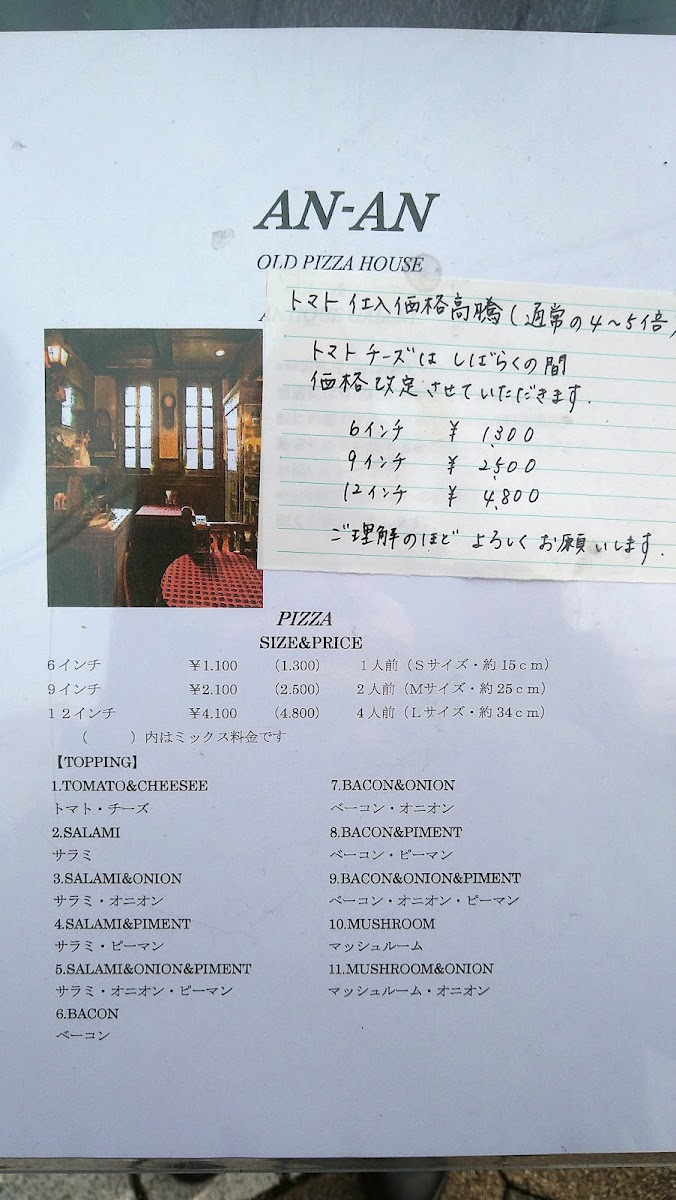 AN-AN
OLD PIZZA HOUSE
トマト仕入価格高騰(通常の4〜5倍)
トマトチーズは しばらくの間
価格改定させていただきます.
6インチ ¥ 1,300
9インチ ¥ 2,500
12インチ ¥ 4,800
ご理解のほど よろしくお願いします.
PIZZA
SIZE&PRICE
6インチ ¥1.100 (1.300) 1人前(Sサイズ・約15cm)
9インチ ¥2.100 (2.500) 2人前(Mサイズ・約25cm)
12インチ ¥4.100 (4.800) 4人前(Lサイズ・約34cm)
( )内はミックス料金です
【TOPPING】
1.TOMATO&CHEESEE
トマト・チーズ
2.SALAMI
サラミ
3.SALAMI&ONION
サラミ・オニオン
4.SALAMI&PIMENT
サラミ・ピーマン
5.SALAMI&ONION&PIMENT
サラミ・オニオン・ピーマン
6.BACON
ベーコン
7.BACON&ONION
ベーコン・オニオン
8.BACON&PIMENT
ベーコン・ピーマン
9.BACON&ONION&PIMENT
ベーコン・オニオン・ピーマン
10.MUSHROOM
マッシュルーム
11.MUSHROOM&ONION
マッシュルーム・オニオン